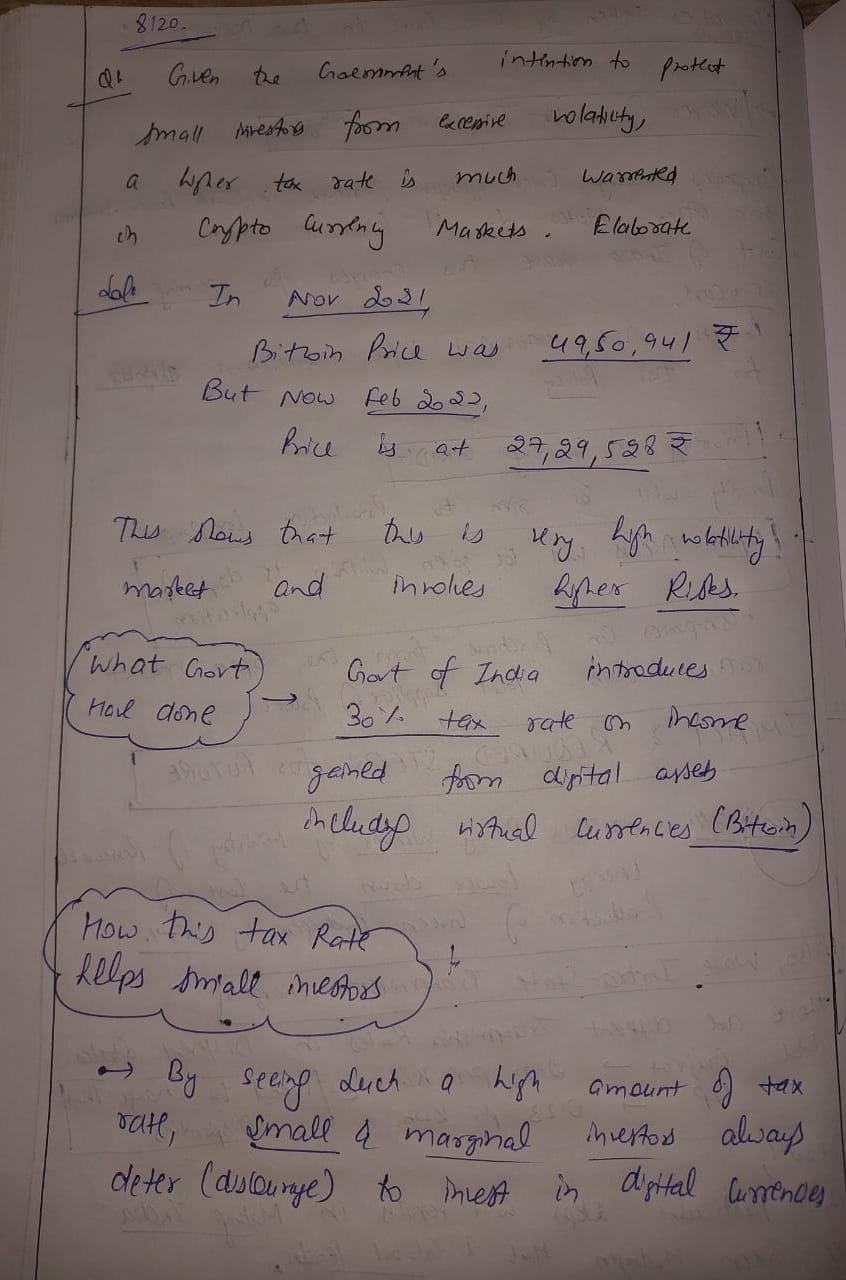 8120.
Q1 Given the Government's intention to protect
small investors from excessive volatility,
a higher tax rate is much warrented
in Crypto Currency Markets. Elaborate
In Nov 2021,
Bitcoin Price was 49,50,941 ₹
But Now Feb 2022,
Price is at 27,29,528 ₹
This shows that this is very high volatility
market and involves higher Risks.
What Govt
Have done → Govt of India introduces
30% tax rate on income
gained from digital assets
including virtual currencies (Bitcoin)
How this tax Rate
helps small investors
→ By seeing such a high amount of tax
rate, small & marginal investors always
deter (discourage) to invest in digital currencies